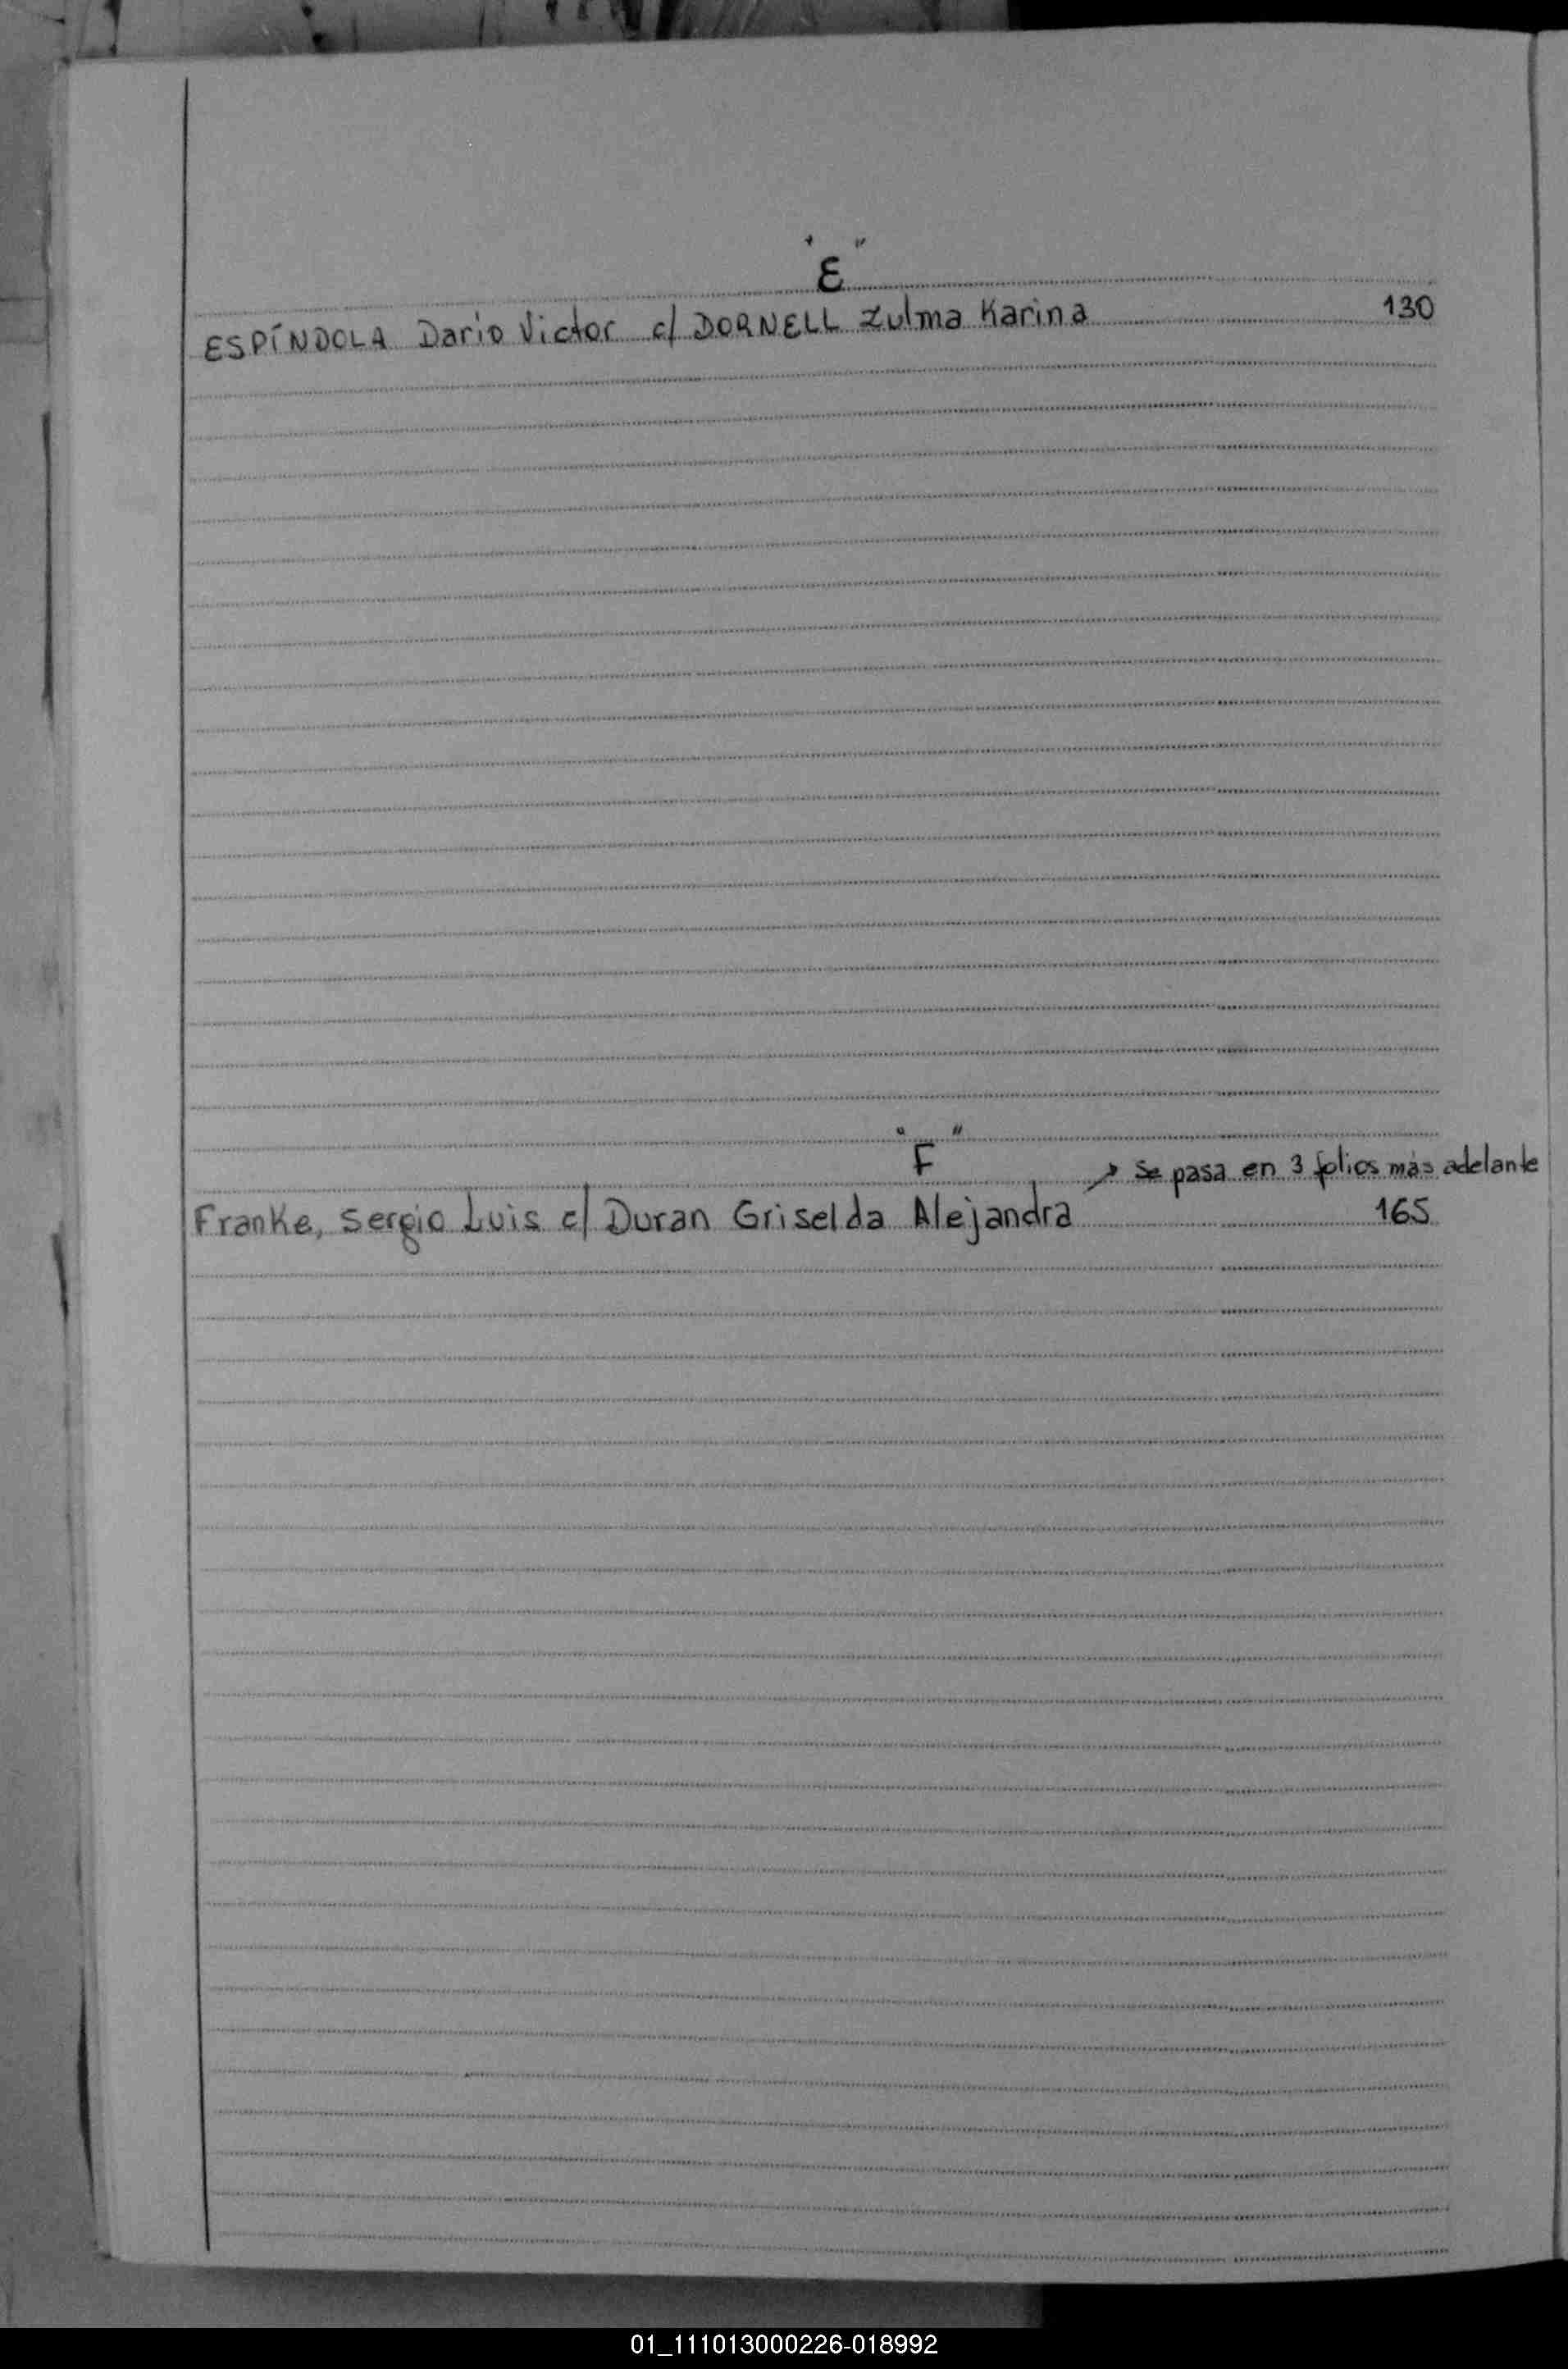 "E"
ESPÍNDOLA Dario Victor c/ DORNELL Zulma Karina 130
"F"
→ Se pasa en 3 folios más adelante
Franke, Sergio Luis c/ Duran Griselda Alejandra 165
01_111013000226-018992